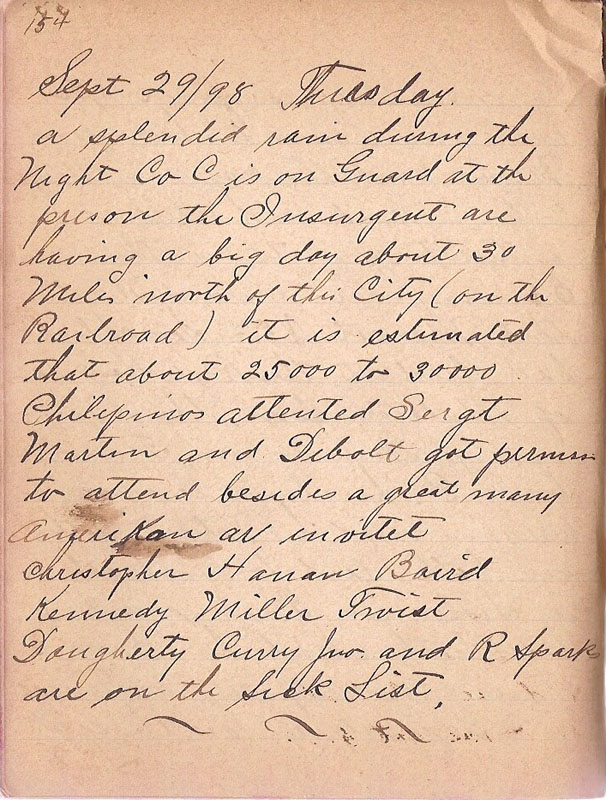 154
Sept 29/98 Thusday.
a splendid rain during the
Night Co C is on Guard at th
preson the Insurgent are
having a big day about 30
Miles north of this City (on the
Railroad) it is estimated
that about 25000 to 30000
Philipinos attented Sergt
Martin and Debolt got permiss
to attend besides a great many
Amerikan ar invitet
Christopher Hanan Baird
Kennedy Miller Twist
Dougherty Curry Jno. and R Spark
are on the Sick List,